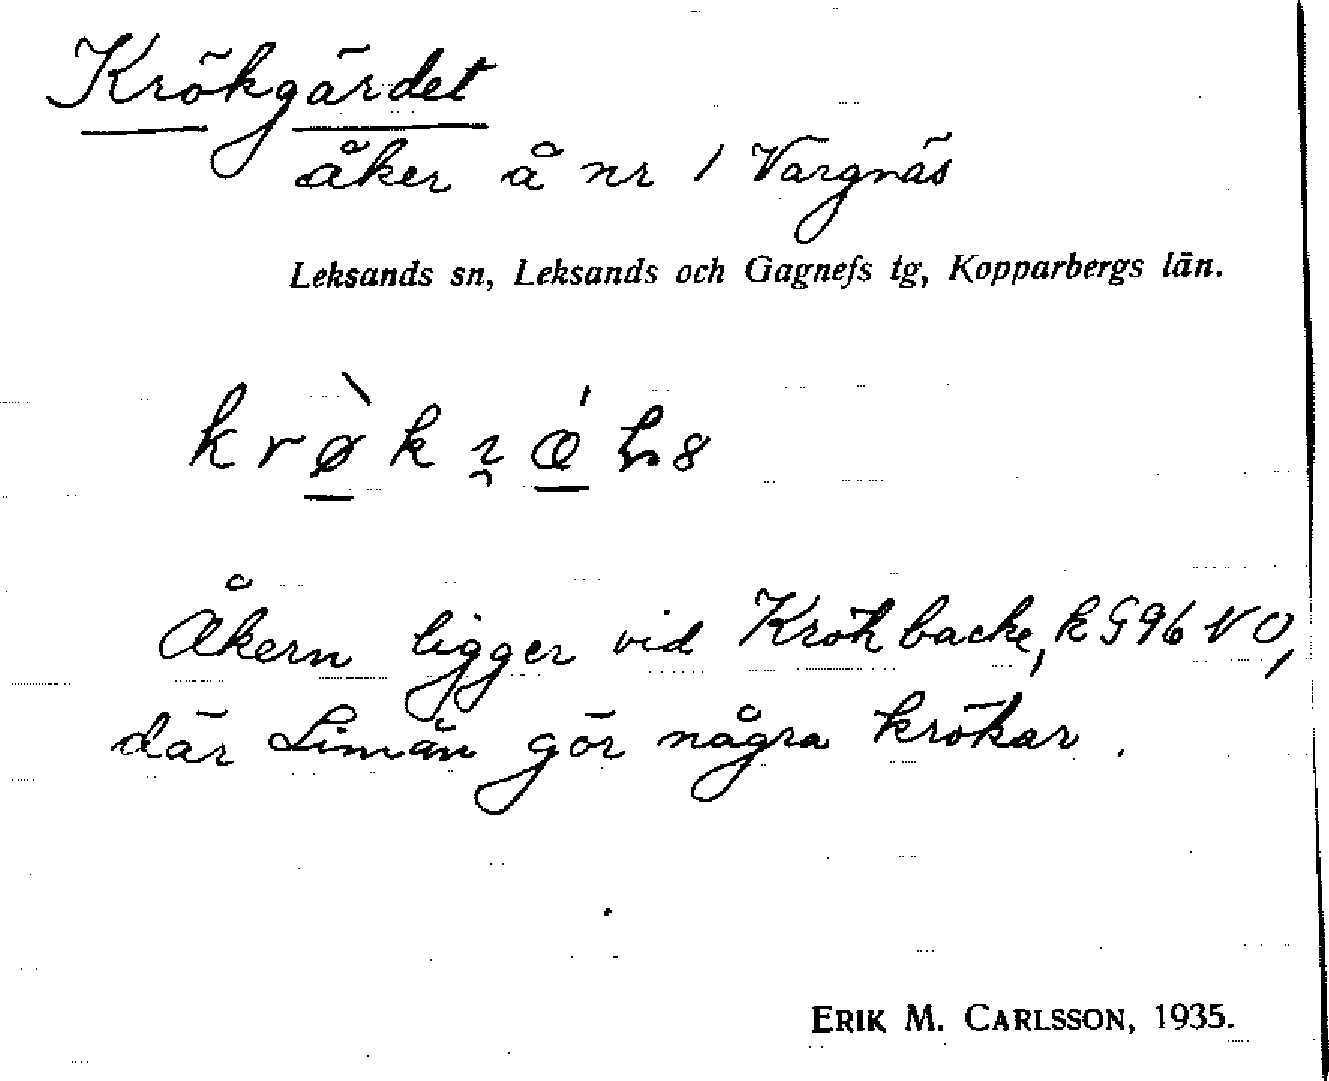 Krökgärdet
åker å nr 1 Vargnäs
Leksands sn, Leksands och Gagnefs tg, Kopparbergs län.
Åkern ligger vid Krökbacke, k G 96 NO,
där Limån gör några krökar.
ERIK M. CARLSSON, 1935.